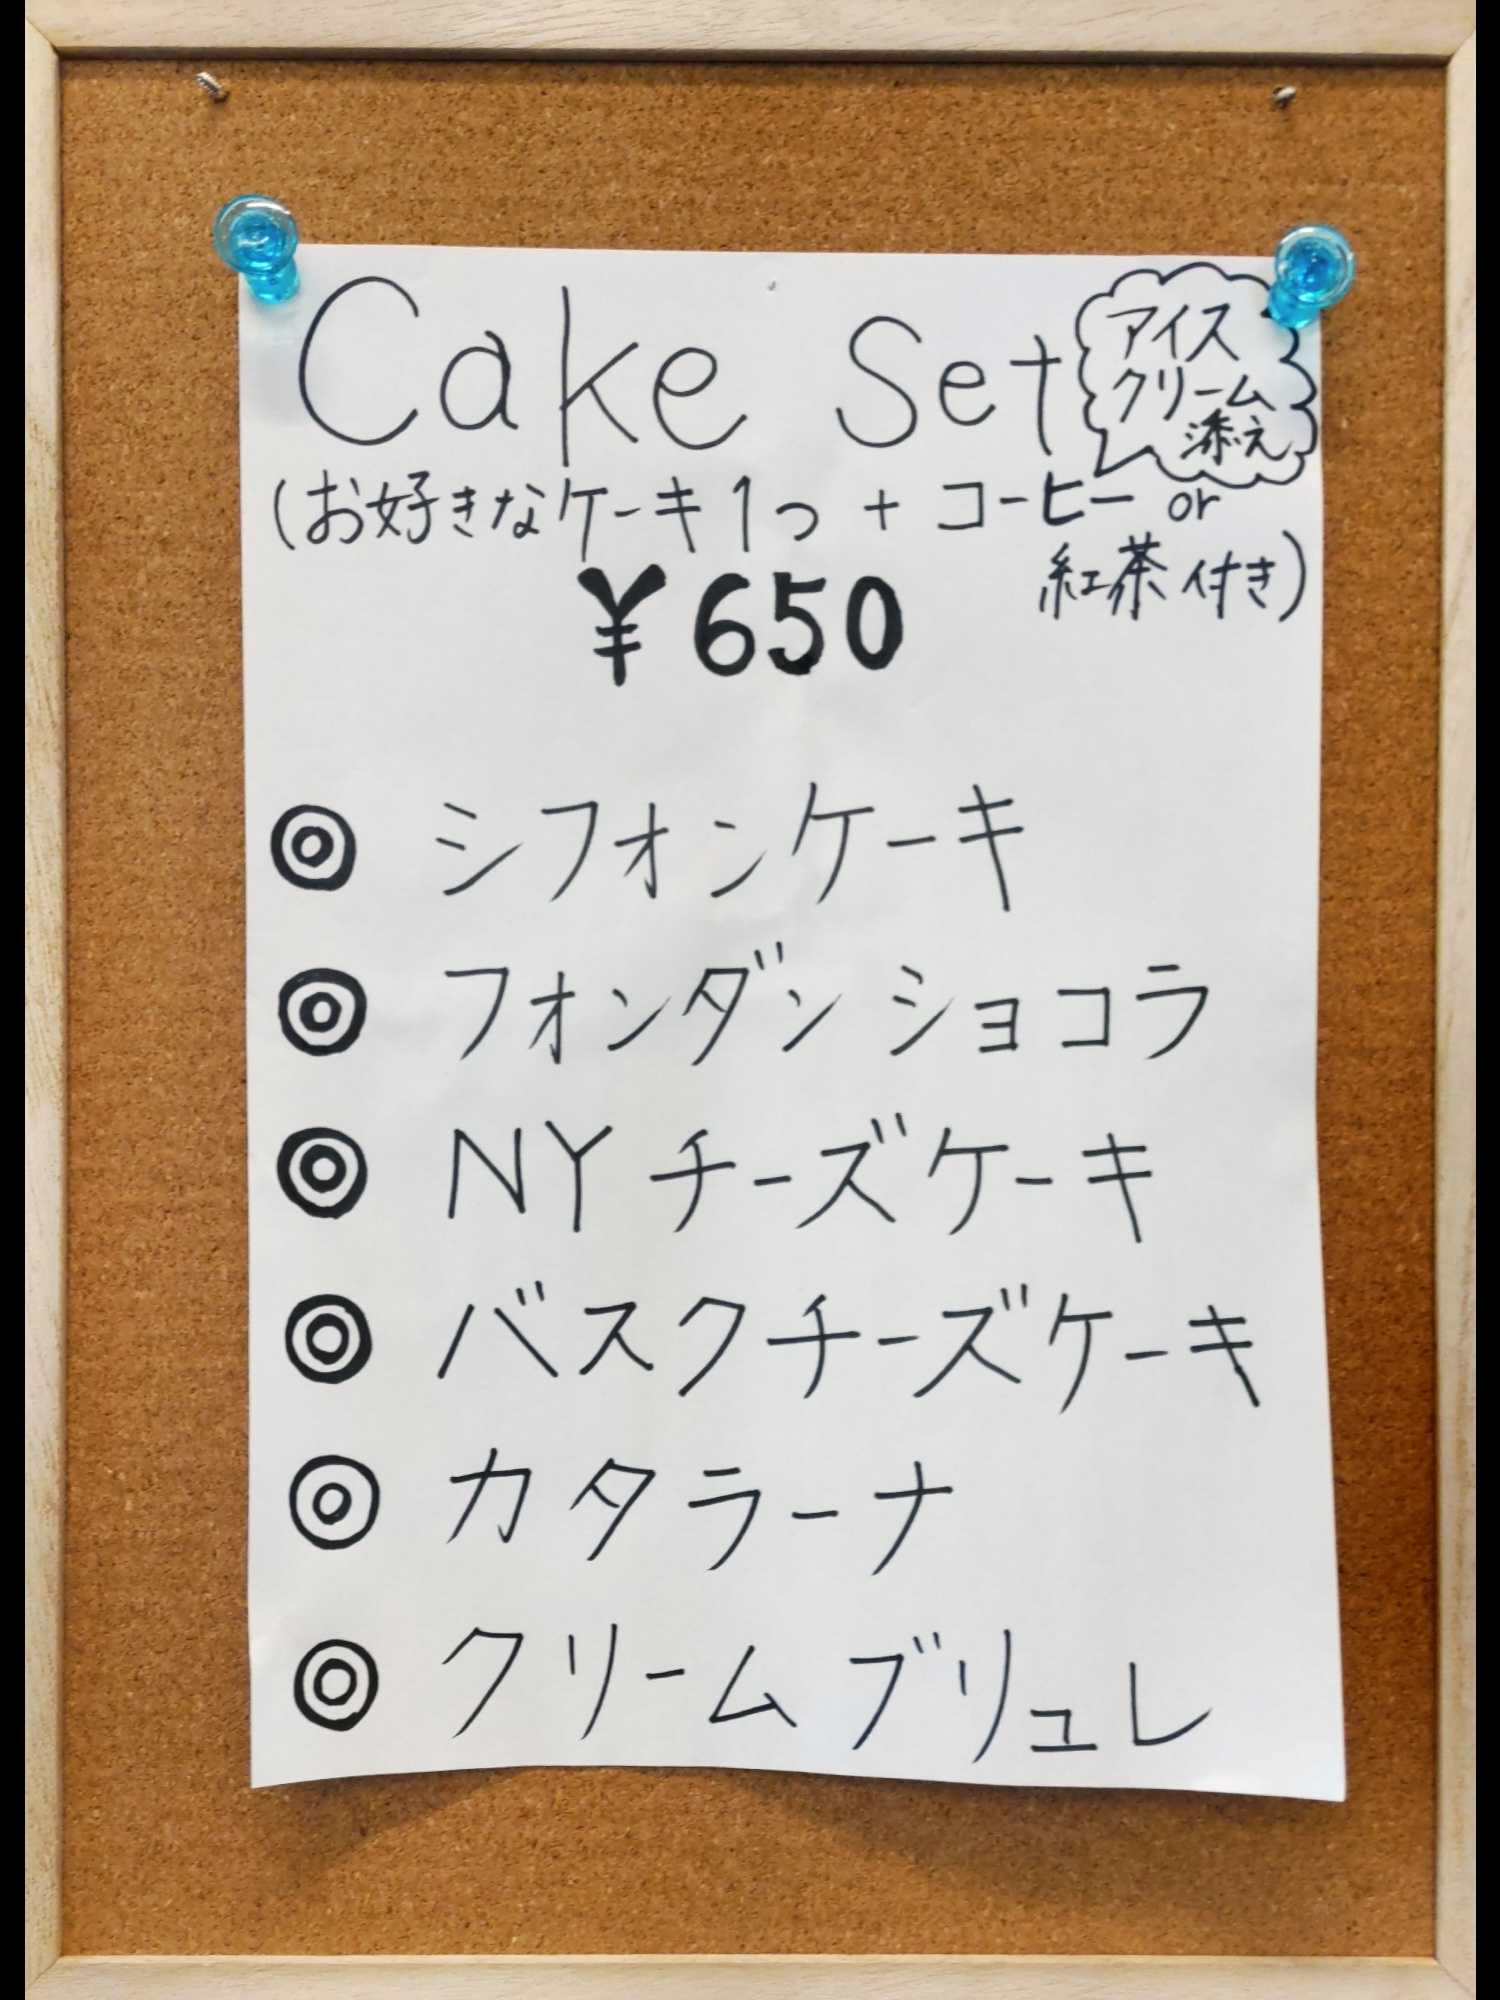 Cake Set
アイス
クリーム
添え
(お好きなケーキ1つ + コーヒー or
紅茶付き)
¥650
◎ シフォンケーキ
◎ フォンダンショコラ
◎ NYチーズケーキ
◎ バスクチーズケーキ
◎ カタラーナ
◎ クリームブリュレ